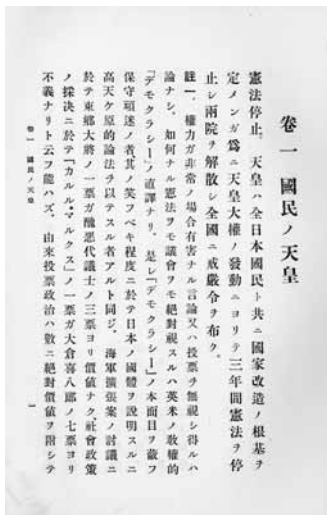 卷一 國民ノ天皇
憲法停止。天皇ハ全日本國民ト共ニ國家改造ノ根基ヲ
定メンガ爲ニ天皇大權ノ發動ニヨリテ三年間憲法ヲ停
止シ兩院ヲ解散シ全國ニ戒嚴令ヲ布ク。
註一。權力ガ非常ノ場合有害ナル言論又ハ投票ヲ無視シ得ルハ
論ナシ。如何ナル憲法ヲモ議會ヲモ絕對視スルハ英米ノ敎權的
「デモクラシー」ノ直譯ナリ。是レ「デモクラシー」ノ本面目ヲ蔽フ
保守頑迷ノ者其ノ笑フベキ程度ニ於テ日本ノ國體ヲ說明スルニ
高天ケ原的論法ヲ以テスル者アルト同ジ。海軍擴張案ノ討議ニ
於テ東鄕大將ノ一票ガ醜惡代議士ノ三票ヨリ價値ナク、社會政策
ノ採決ニ於テ「カルル・マルクス」ノ一票ガ大倉喜八郎ノ七票ヨリ
不義ナリト云フ能ハズ。由來投票政治ハ數ニ絕對價値ヲ附シテ
卷一 國民ノ天皇
一